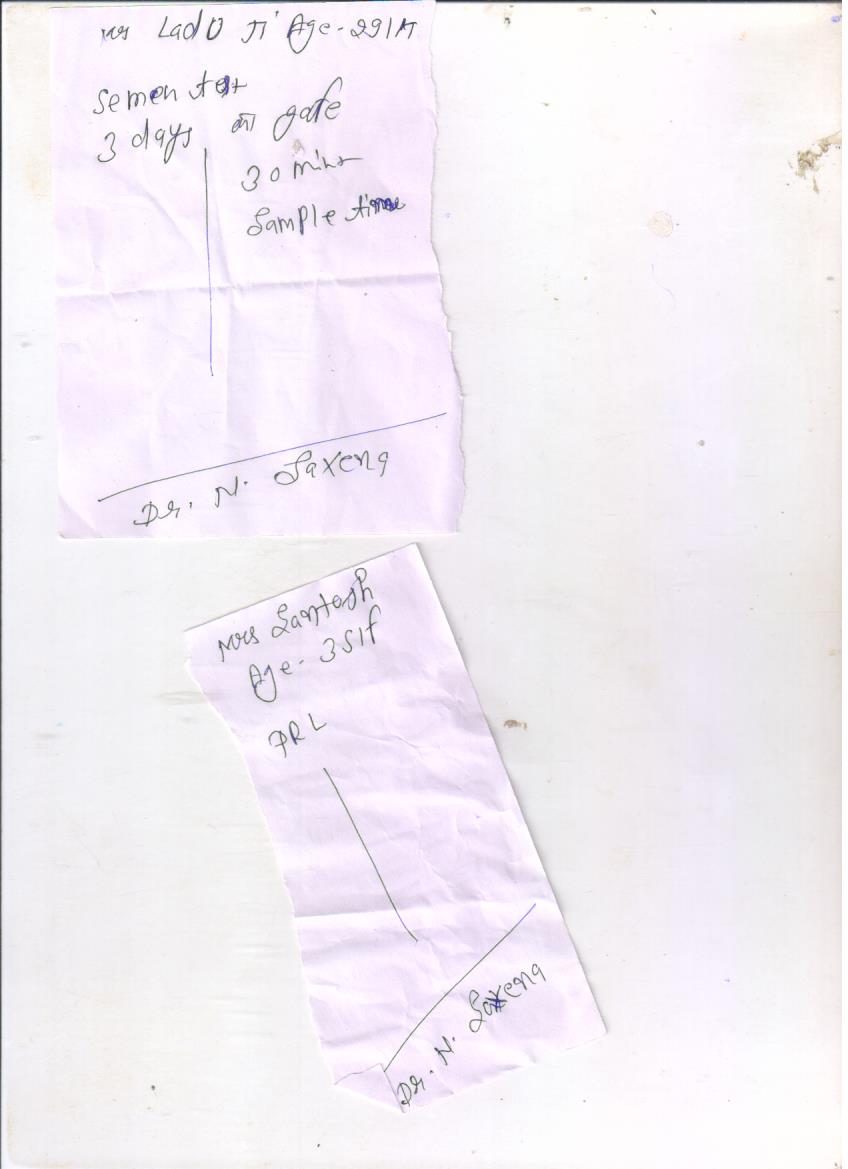 Mr Lado Ji Age-29/M
Semen test
3 days का gafe
30 mint
Sample time
Dr. N. Saxena
Mrs Santosh
Age-35/f
PRL
Dr. N. Saxena